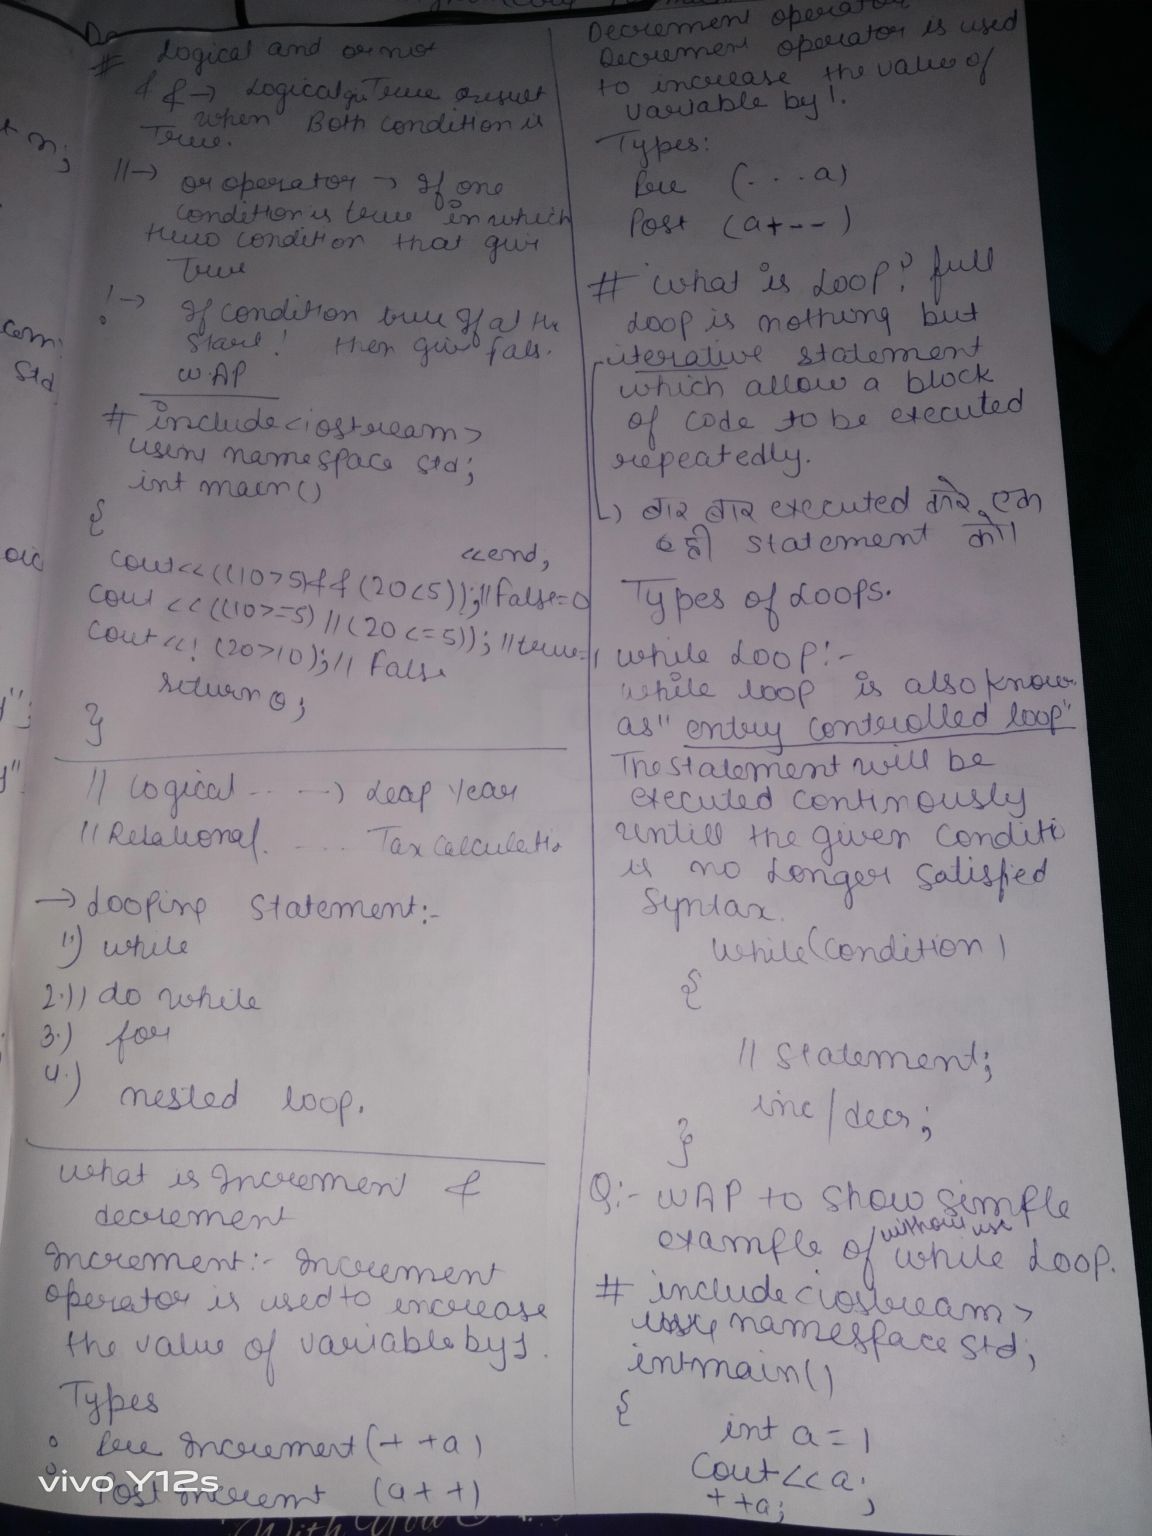 # Logical and or not
&& → Logical Treue result
when Both condition is
True.
|| → or operator → If one
condition is true in which
two condition that give
True
! → If condition true If at the
start ! then give fals.
WAP
# include <iostream>
using namespace std;
int main()
{
<<end,
cout<<((10>5)&&(20<5)); // false=0
cout <<((10>=5) || (20<=5)); // true=1
cout<<! (20>10); // false
return 0;
}
// Logical ... → Leap Year
// Relational. .... Tax calculatio
→ Looping Statement:-
1) while
2.) do while
3.) for
4.) nested loop.
What is Increment &
decrement
Increment:- Increment
operator is used to increase
the value of variable by 1.
Types
Pre Increment (++a)
Post Increment (a++)
Decrement operator
Decrement operator is used
to increase the value of
variable by 1.
Types:
Pre (...a)
Post (a+--)
# What is Loop? full
Loop is nothing but
iterative statement
which allow a block
of code to be executed
repeatedly.
बार बार executed करे एक
ही statement को।
Types of Loops.
while Loop:-
while loop is also know
as "entry controlled loop"
The statement will be
executed continously
untill the given conditi
is no longer satisfied
Syntax.
while(condition)
{
// statement;
inc/decr;
}
Q:- WAP to show simple
without use
example of while Loop.
# include <iostream>
namespace std;
int main()
{
int a = 1
Cout<<a;
++a;
vivo Y12s
With You